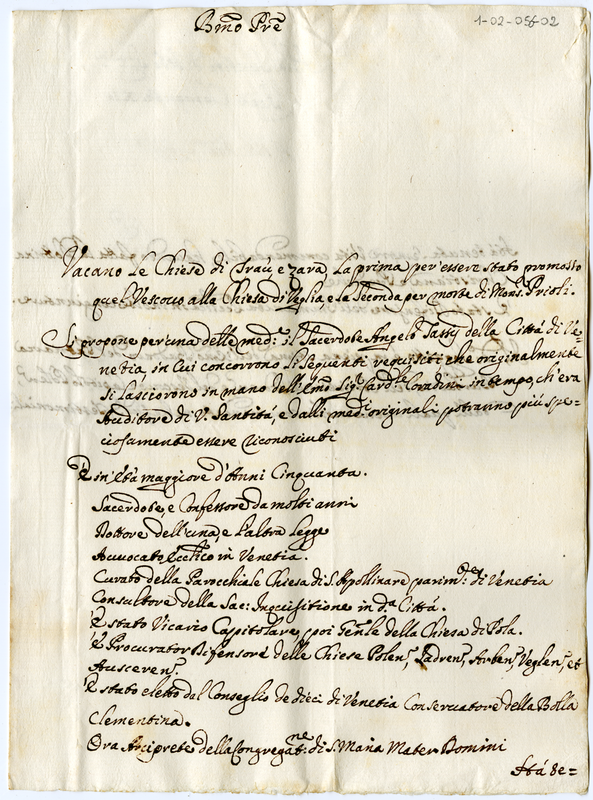 1-02-055-02
Bmo Pre
Vacano le Chiese di Traù, e Zara, la prima per essere stato promosso
quel Vescovo alla Chiesa di Veglia, e la seconda per morte di Mons. Prioli.
Si propone per una delle med: il Sacerdote Angelo della Città di Ve=
netia, in cui concorrono li seguenti requisiti che originalmente
si lasciorono in mano dell'Emo Sigr Cardle Coradini in tempo, ch'era
Auditore di V. Santità, e dalli medi originali potranno più spe=
ciosamente essere riconosciuti
È in età maggiore d'Anni Cinquanta.
Sacerdote, e Confessore da molti anni
Dottore dell'una, e l'altra legge
Avvocato Eccltico in Venetia.
Curato della Parocchiale Chiesa di S. Apollinare parimte di Venetia
Consultore della Sac: Inquisitione in da Città.
È stato Vicario Capitolare, poi Genle della Chiesa di Pola.
È Procurator difensore delle Chiese Polen, Jadren, Arben, Veglen, et
Ausceren.
È stato eletto dal Conseglio de dieci di Venetia Conservatore della Bolla
Clementina.
Ora Arciprete della Congregatne di S. Maria Mater Domini
Hà de=